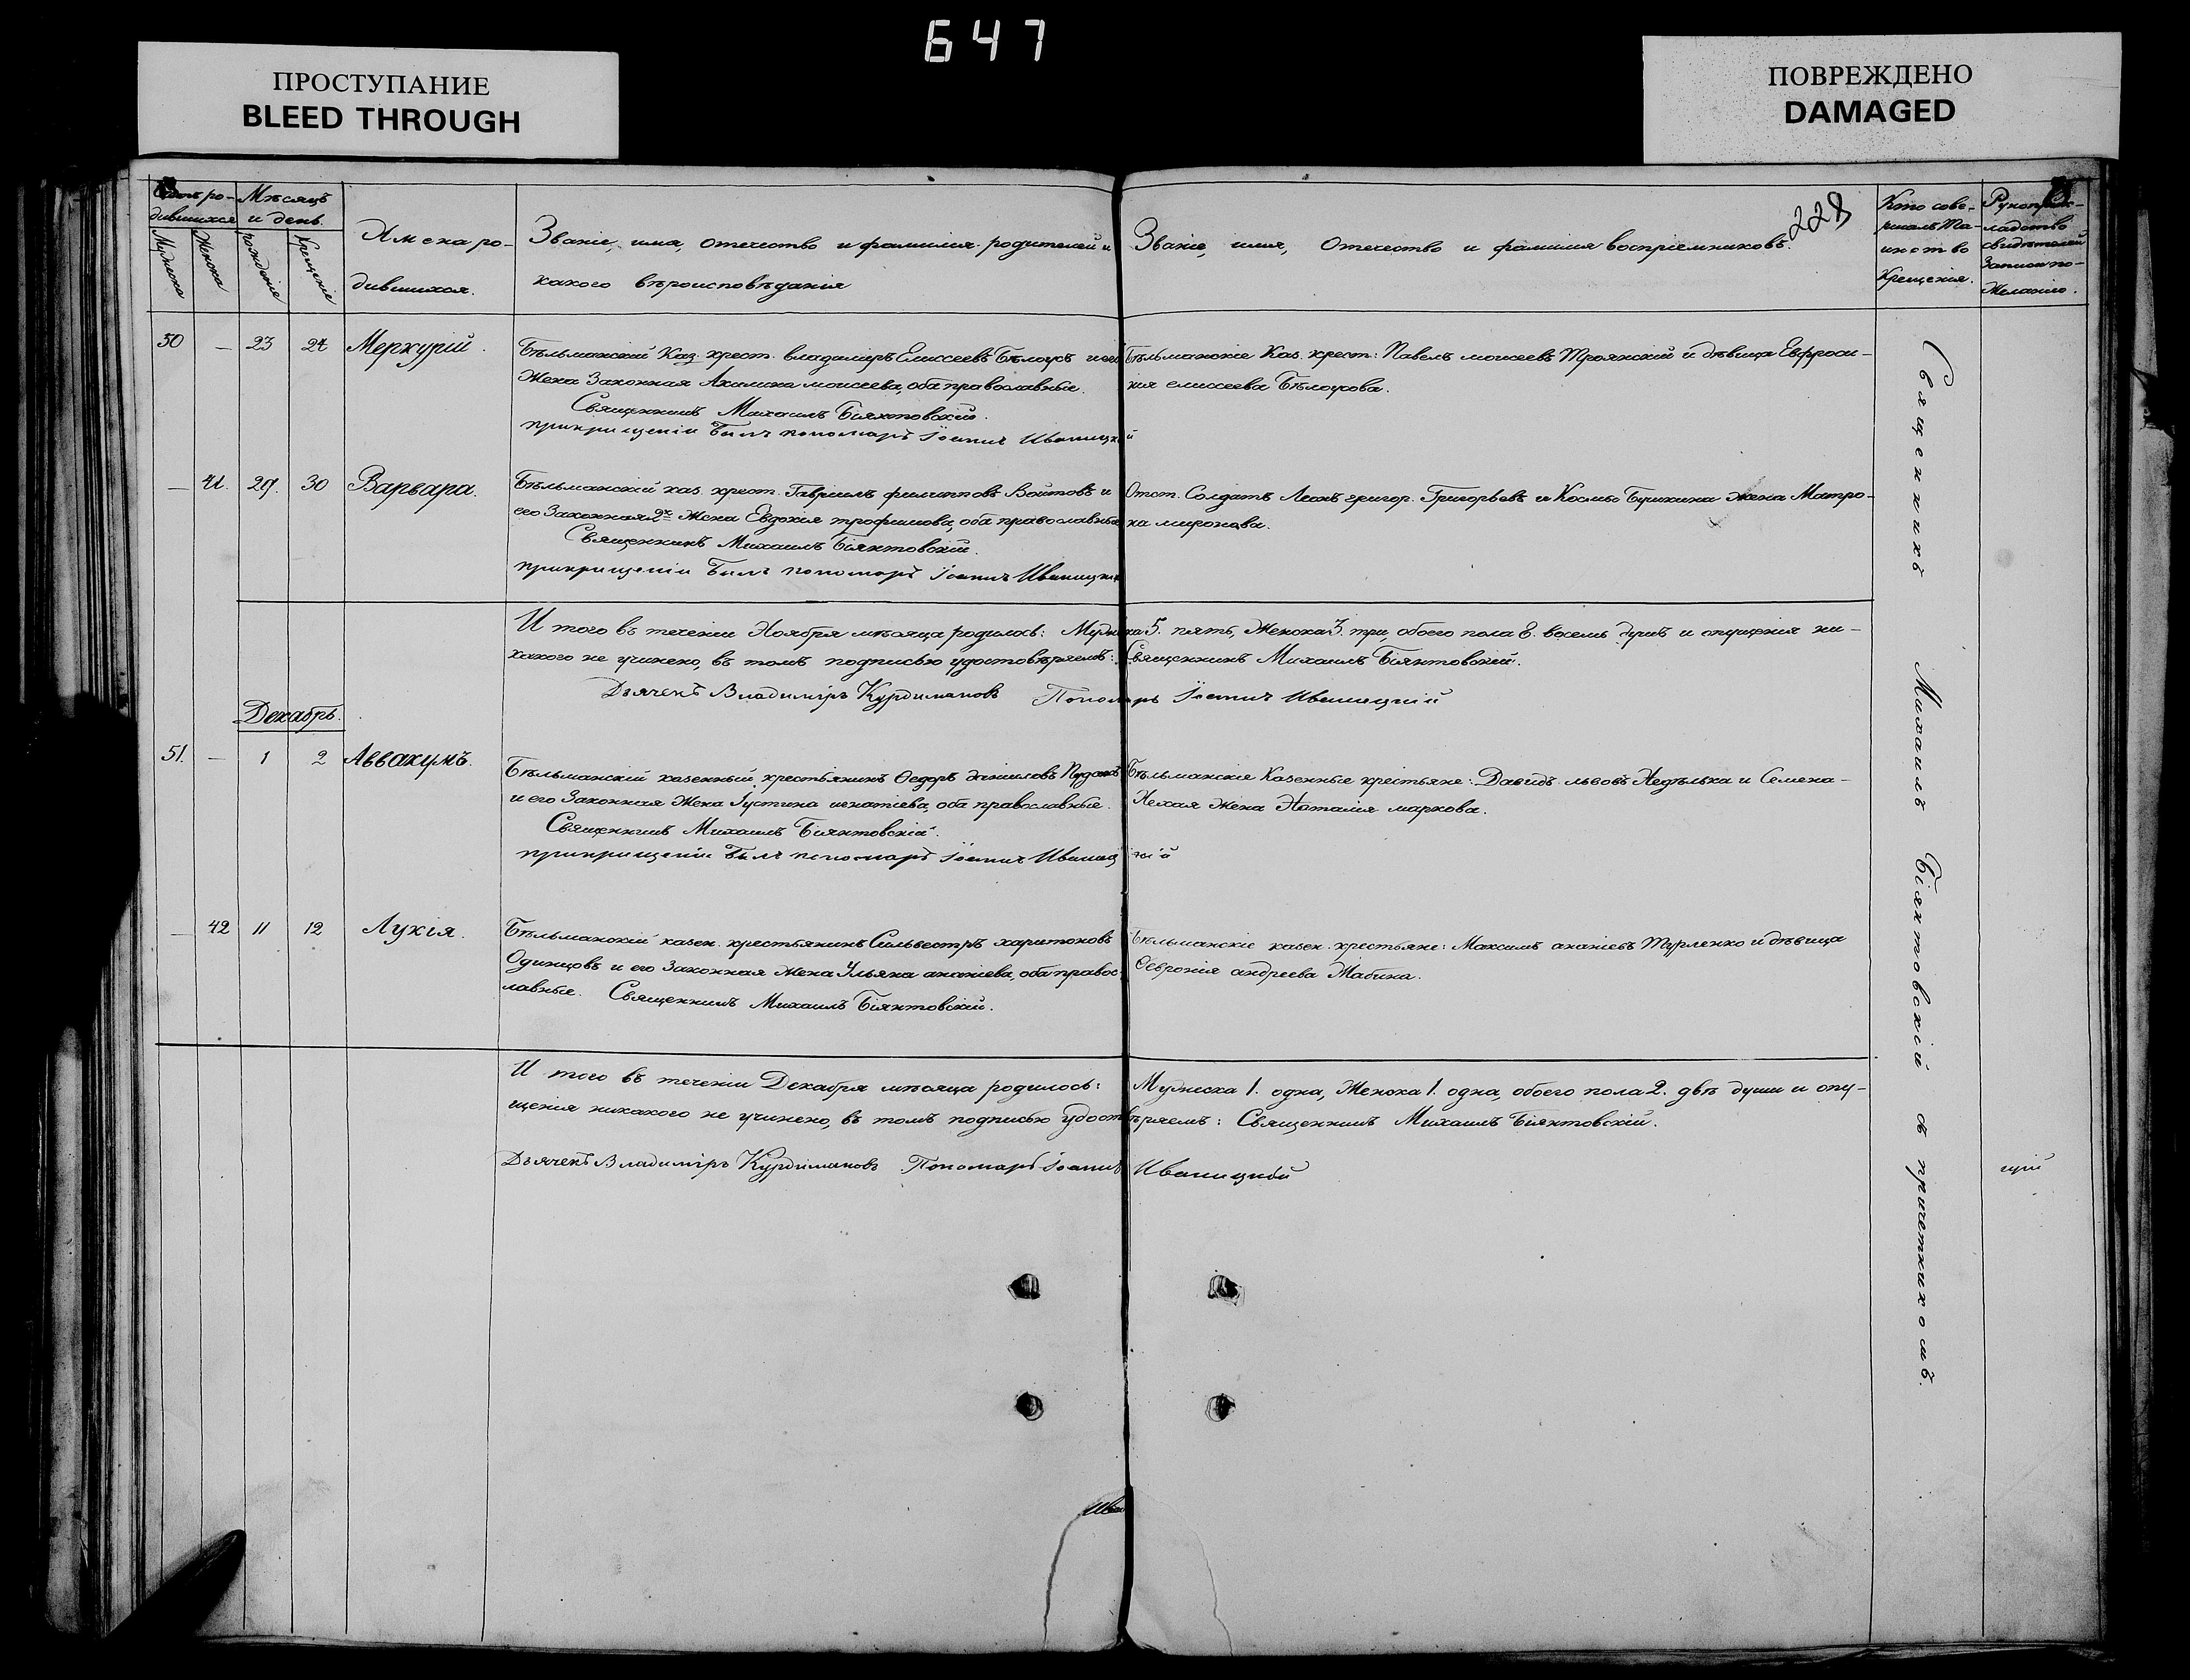 647
ПРОСТУПАНИЕ
BLEED THROUGH
ПОВРЕЖДЕНО
DAMAGED
228
Счетъ ро-
дившихся
Мѣсяцъ
и день.
Мужеска
Женска
рожденіе
Крещеніе
Имена ро-
дившихся.
Званіе, имя, отечество и фамилія родителей и
какого вѣроисповѣданія
Званіе, имя, Отечество и фамилія воспріемниковъ.
Кто сове-
ршалъ Та-
инство
Крещенія.
Рукоприк-
ладство
свидѣтелей
Записи по-
Желанію.
50 — 23 24 Меркурій.
Бѣльманскій Каз. крест. владиміръ Елиссеевъ Бѣлоусъ и его
Жена Законная Акилина моисеева, оба православные.
Священникъ Михаилъ Біянтовскій.
прикрищеніи Былъ пономарь Іоаннъ Иваницкій
Бѣльманскіе Каз. крест: Павелъ моисеевъ Троянскій и дѣвица Евфроси-
нія елиссеева Бѣлоусова.
— 41. 29. 30 Варвара.
Бѣльманскій каз. крест. Гавріилъ филипповъ Войтовъ и
его Законная 2я Жена Евдокія трофимова, оба православные
Священникъ Михаилъ Біянтовскій.
прикрищеніи Былъ пономарь Іоаннъ Иваницкій
Отст. Солдатъ Леонъ григор. Григорьевъ и Космы Бушкина жена Матро-
на миронова.
И того въ теченіи Ноября мѣсяца родилось: Мужеска 5. пять, Женска 3. три, обоего пола 8. восемь душъ и опущенія ни-
какого не учинено, въ томъ подписью удостовѣряемъ: Священникъ Михаилъ Біянтовскій.
Дьячекъ Владиміръ Курдимановъ Пономарь Іоаннъ Иваницкій
Декабрь.
51. — 1 2 Аввакумъ.
Бѣльманскій казенный крестьянинъ Ѳедоръ даниловъ
и его Законная Жена Іустина игнатіева, оба православные.
Священникъ Михаилъ Біянтовскій.
прикрищеніи Былъ пономарь Іоаннъ Иваницкій
Бѣльманскіе Казенные крестьяне: Давидъ львовъ Недѣлька и Семена-
Нехая Жена Наталія маркова.
— 42 11 12 Лукія.
Бѣльманскій казен. крестьянинъ Сильвестръ харитоновъ
Одинцовъ и его Законная Жена Ульяна ананіева, оба правос-
лавные. Священникъ Михаилъ Біянтовскій.
Бѣльманскіе казен. крестьяне: Максимъ ананіевъ Турленко и дѣвица
Ѳевронія андреева Жабина.
И того въ теченіи Декабря мѣсяца родилось: Мужеска 1. одна, Женска 1. одна, обоего пола 2. двѣ души и опу-
щенія никакого не учинено, въ томъ подписью удоствѣряемъ: Священникъ Михаилъ Біянтовскій.
Дьячекъ Владиміръ Курдимановъ Пономарь Іоаннъ Иваницкій
Священникъ Михаилъ Біянтовскій съ причетникомъ.
цкій
Ива